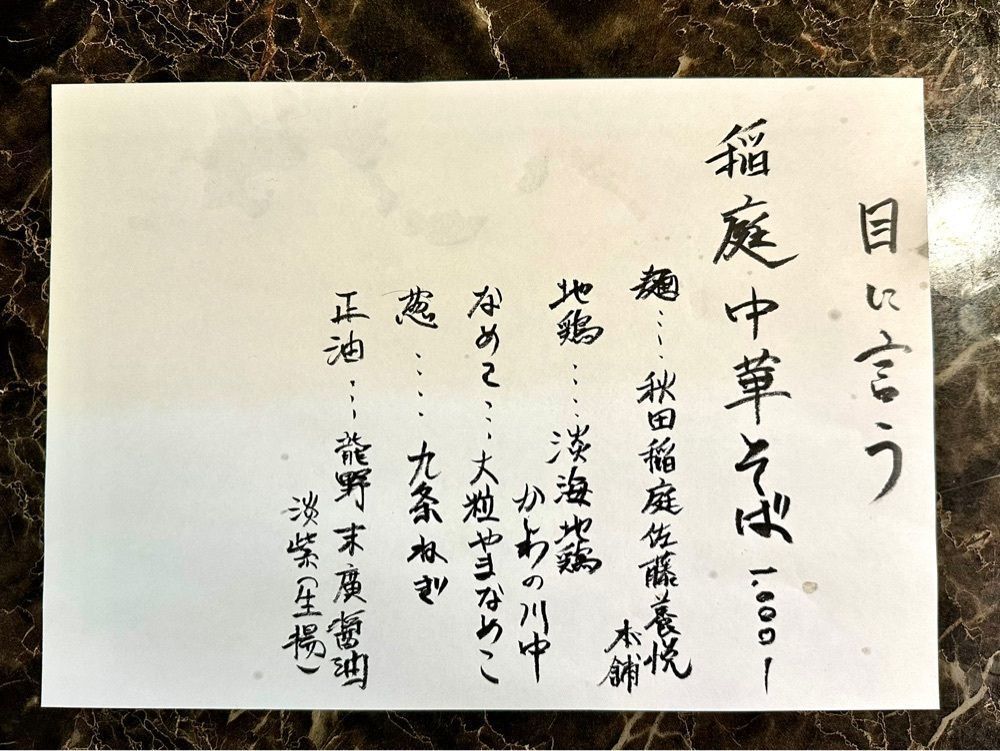 目に言う
稲庭中華そば 1.000ー
麺‥‥秋田稲庭佐藤養悦
本舗
地鶏‥‥淡海地鶏
かしわの川中
なめこ‥‥大粒やまなめこ
葱‥‥九条ねぎ
正油‥‥龍野末廣醤油
淡紫(生揚)